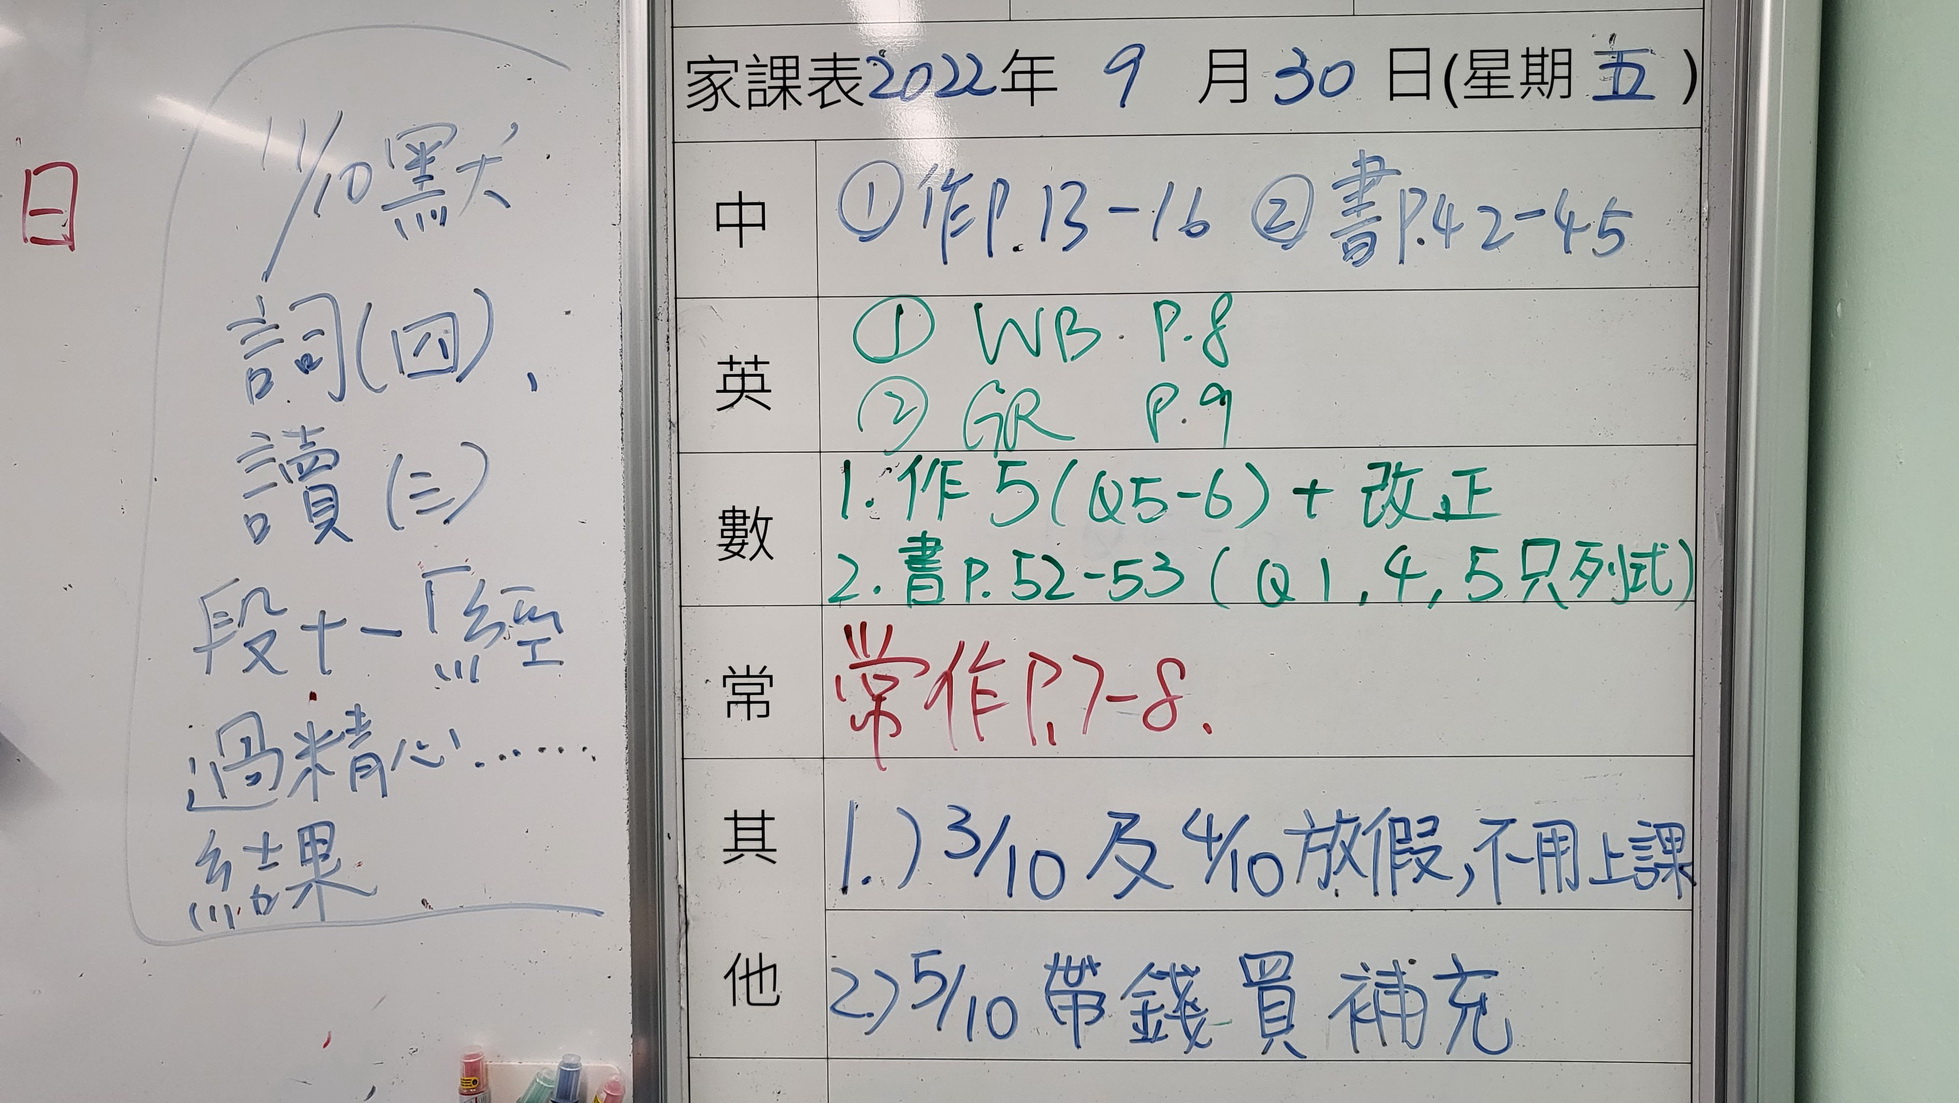 日
11/10默
詞(四)、
讀(三)
段十一「經
過精心……
結果
家課表2022年 9 月 30 日(星期 五 )
中
①作P.13-16 ②書P.42-45
英
① WB. P.8
② GR P.9
數
1.作5(Q5-6)+改正
2.書P.52-53(Q1,4,5只列式)
常
常作P.7-8.
其
1.)3/10及4/10放假,不用上課
他
2.)5/10帶錢買補充